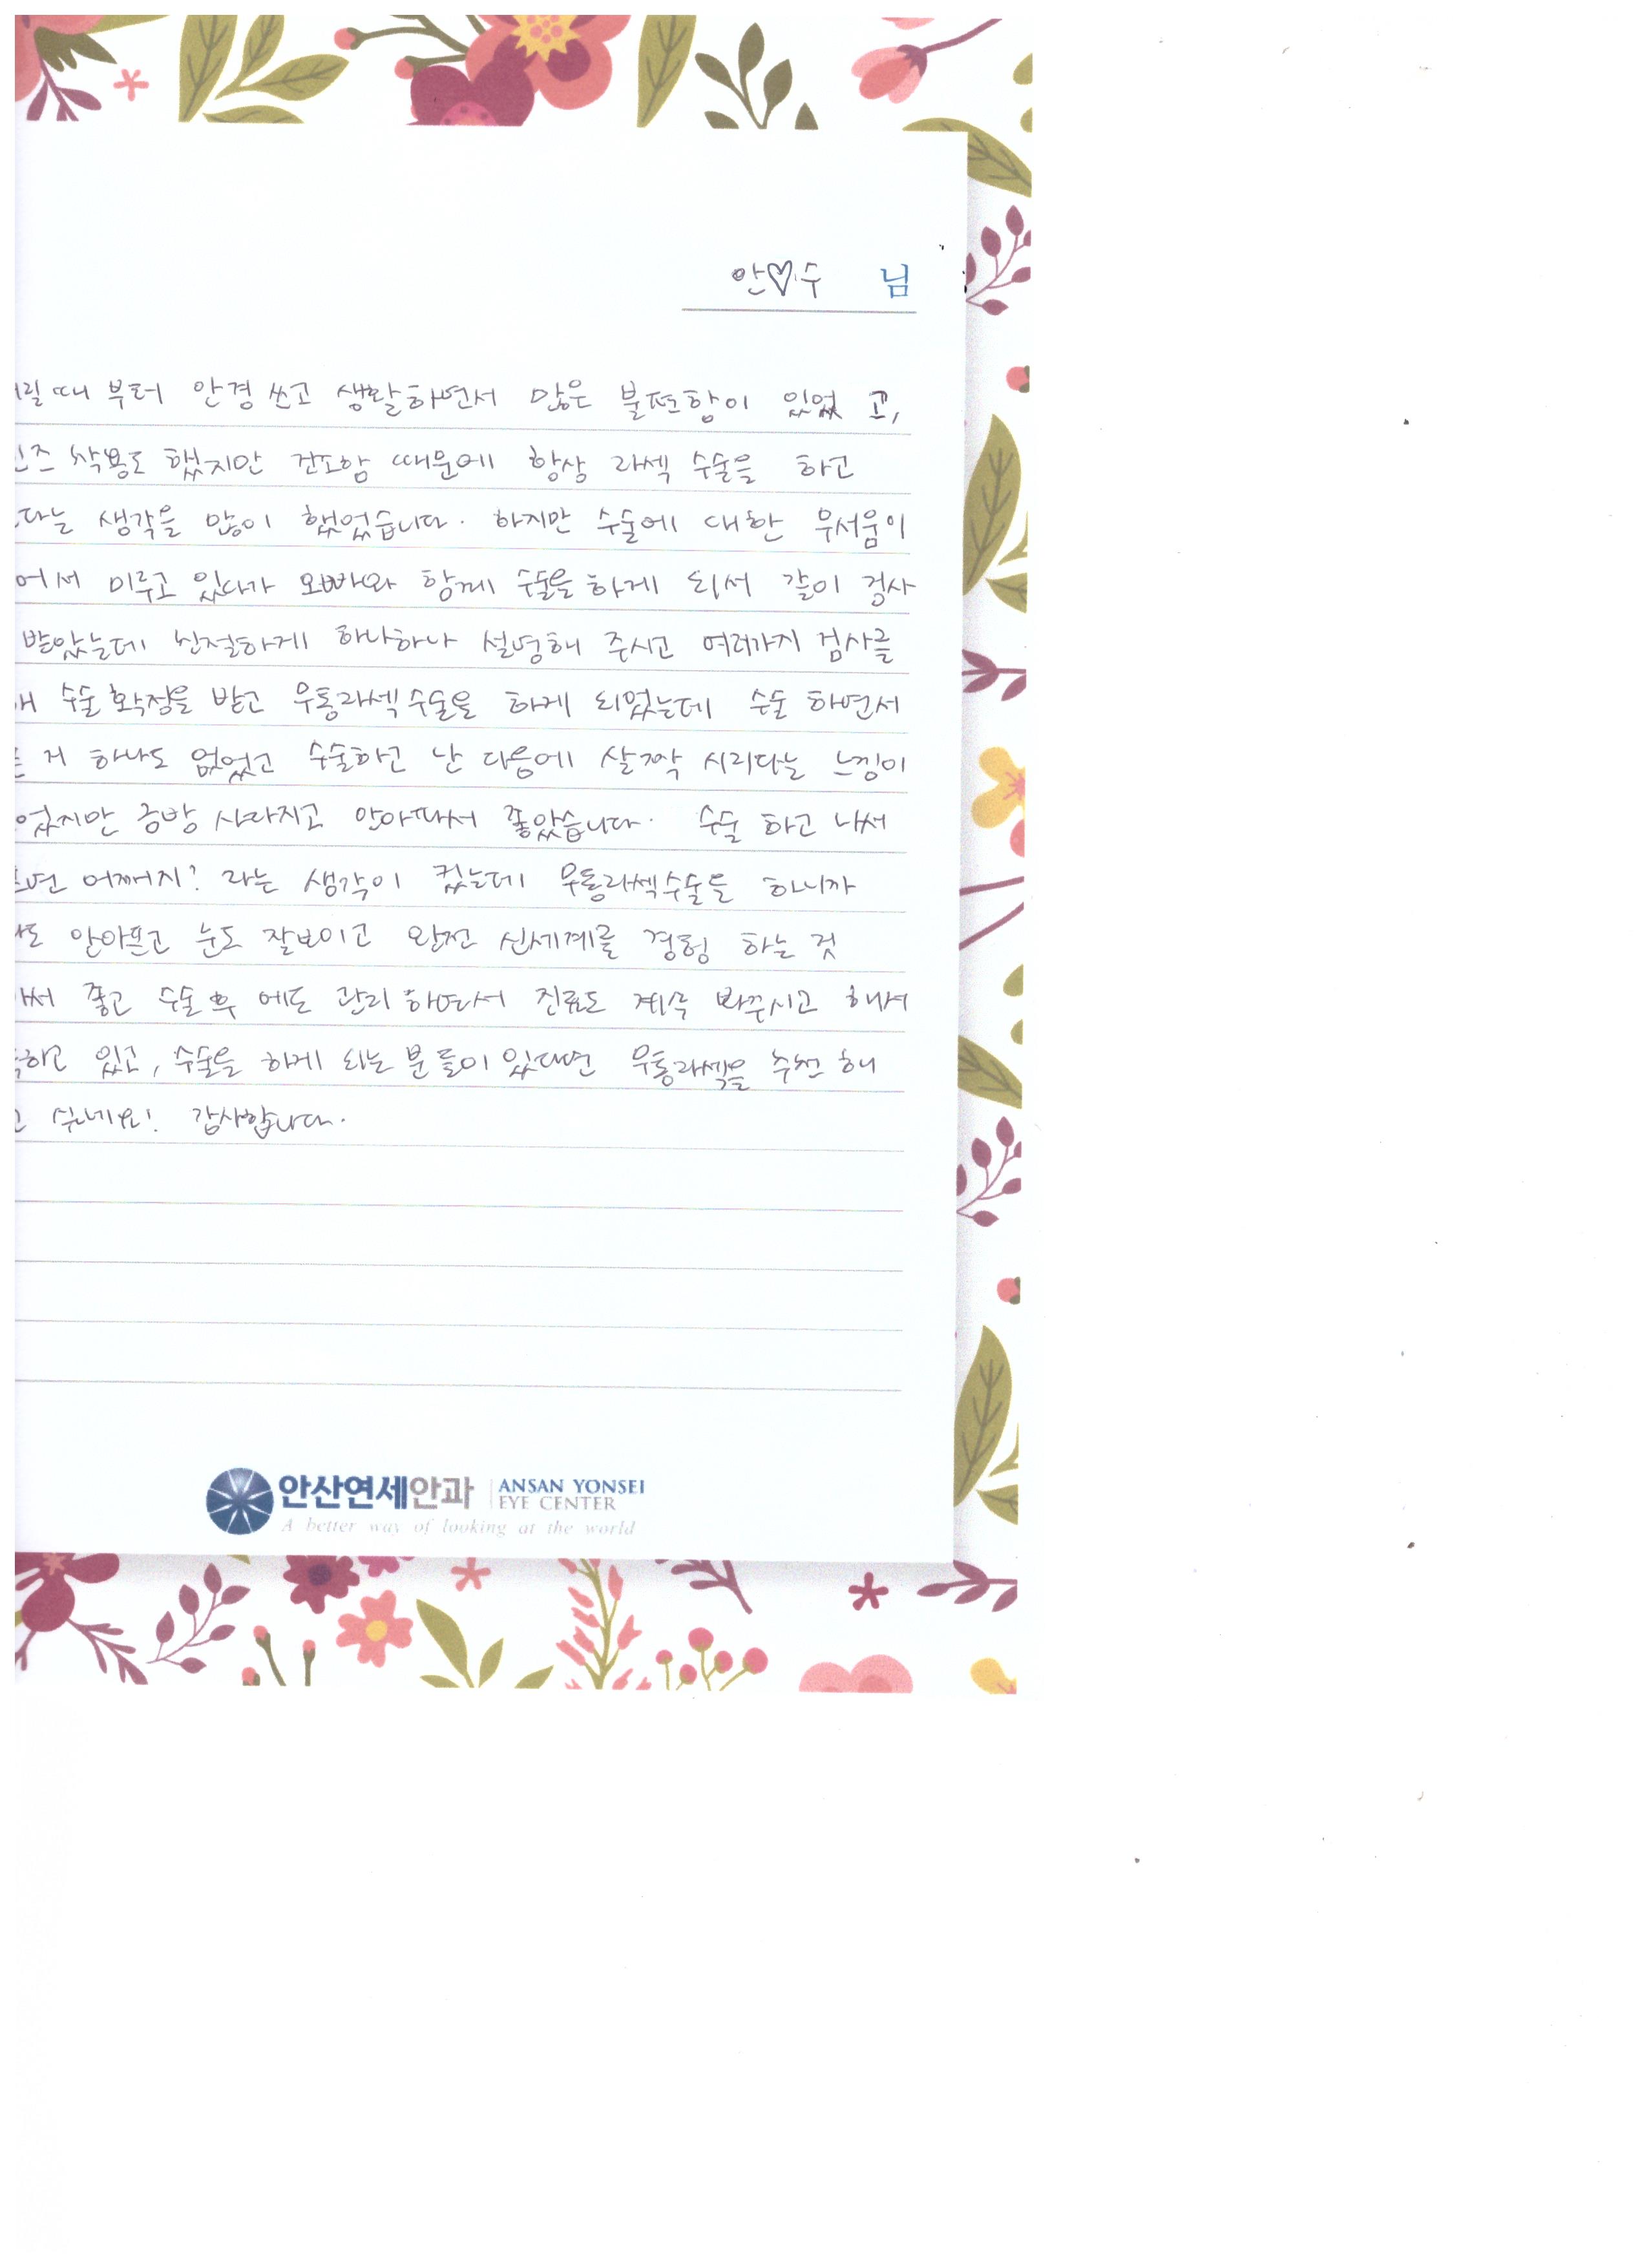 안♡수 님
릴때부터 안경 쓰고 생활하면서 많은 불편함이 있었고,
즈 착용도 했지만 건조함 때문에 항상 라섹 수술을 하고
다는 생각을 많이 했었습니다. 하지만 수술에 대한 무서움이
어서 미루고 있다가 오빠와 함께 수술을 하게 되서 같이 검사
받았는데 친절하게 하나하나 설명해 주시고 여러가지 검사를
수술 확정을 받고 무통라섹수술을 하게 되었는데 수술 하면서
거 하나도 없었고 수술하고 난 다음에 살짝 시리다는 느낌이
었지만 금방 사라지고 안아파서 좋았습니다. 수술 하고 나서
면 어쩌지? 라는 생각이 컸는데 무통라섹수술을 하니까
도 안아프고 눈도 잘보이고 완전 신세계를 경험 하는 것
서 좋고 수술 후 에도 관리 하면서 진료도 계속 봐주시고 해서
하고 있고, 수술을 하게 되는 분들이 있다면 무통라섹을 추천 해
싶네요! 감사합니다.
안산연세안과 ANSAN YONSEI
EYE CENTER
A better way of looking at the world